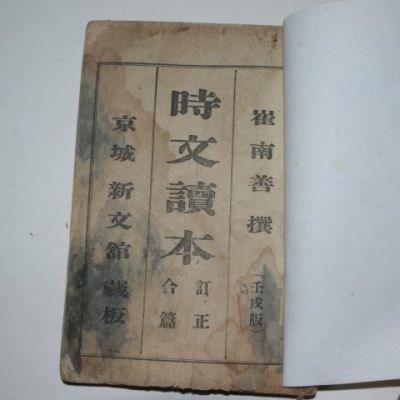 崔南善撰(壬戌版)
時文讀本
訂正
合篇
京城 新文館 藏板